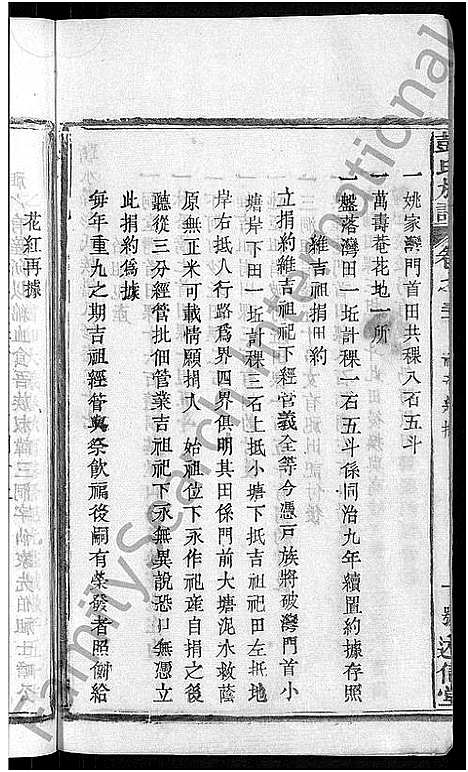 一姚家灣門首田共稞八石五斗
一萬壽菴花地一所
一盤落灣田一坵計稞一石五斗係同治九年續置約據存照
維吉祖捐田約
立捐約維吉祖祀下經官義全等今憑戶族將破灣門首小
塘岸下田一坵計稞三石上抵小塘下抵吉祖祀田左抵地
岸右抵八行路爲界四界俱明其田係門前大塘泥水救蔭
原無正米可載情願捐入 始祖位下永作祀產自捐之後
聽從三分經管批佃管業吉祖祀下永無異說恐口無憑立
此捐約爲據
每年重九之期吉祖經管與祭飲福後嗣有榮發者照衞給
花紅再據
彭氏族譜
述信堂
FamilySearch International